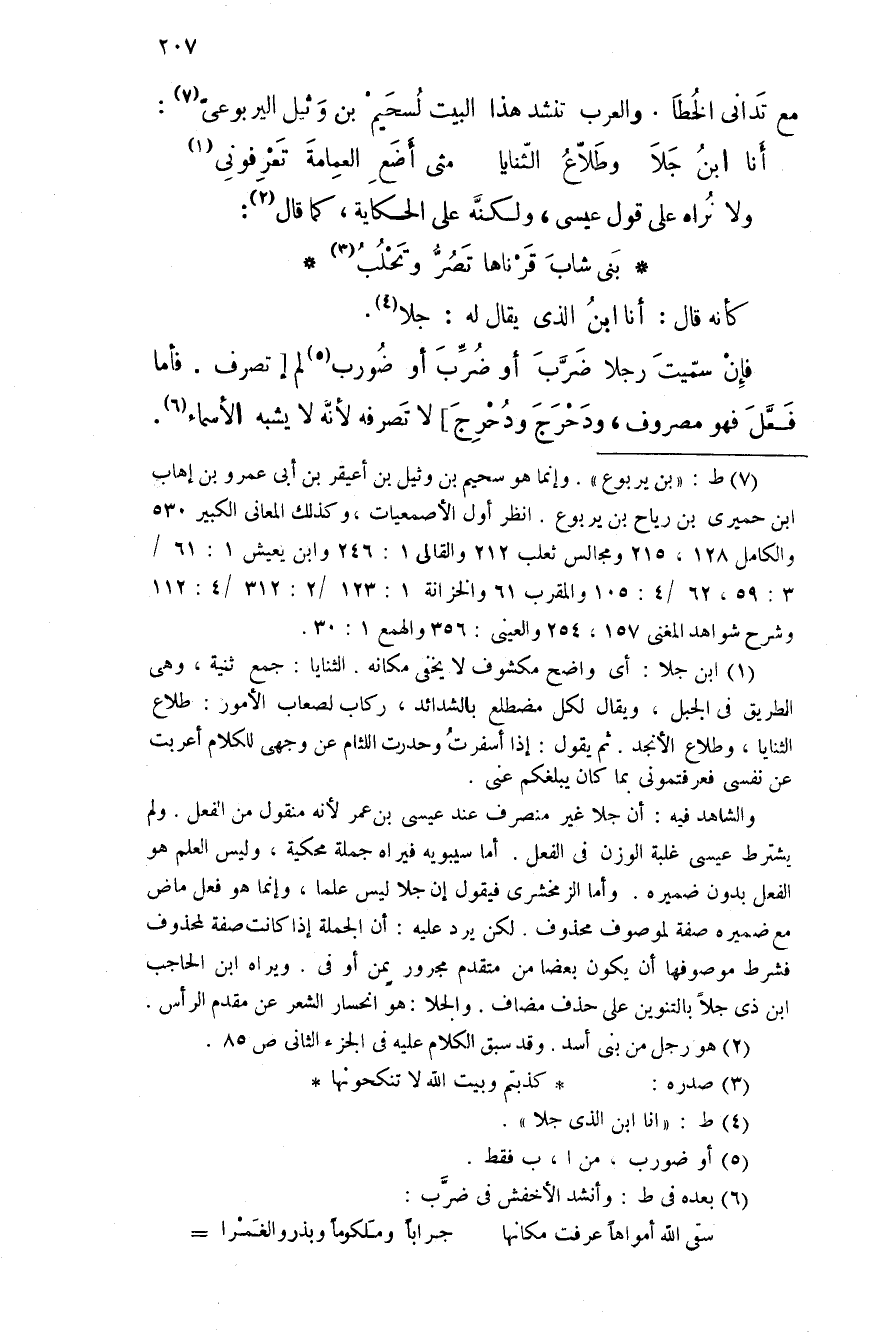 ٢٠٧
مع تَدانى الخُطَا . والعرب تنشد هذا البيت لُسحَيمْ بن وَثيل اليربوعىّ(٧) :
أَنا ابنُ جَلاَ وطَلاّعُ الثّنايا متى أَضَعِ العِمامةَ تَعْرِفونِى(١)
ولا نُراه على قول عيسى ، ولـكنَّه على الحـكاية ، كما قال(٢):
* بَنى شابَ قَرْناها تَصُرُّ وتَحْلُبُ(٣) *
كأنه قال : أنا ابنُ الذى يقال له : جلا(٤).
فإِنْ سمّيتَ رجلا ضَرَّبَ أو ضُرِّبَ أو ضُورب(٥) لم [ تصرف . فأما
فَـعَّلَ فهو مصروف ، ودَحْرَجَ ودُحْرِجَ] لا تَصرفه لأنَّه لا يشبه الأسماء(٦).
(٧) ط : «بن يربوع» . وإنما هو سحيم بن وثيل بن أعيقر بن أبى عمرو بن إهاب
ابن حميرى بن رياح بن يربوع . انظر أول الأصمعيات ، وكذلك المعانى الكبير ٥٣٠
والكامل ١٢٨ ، ٢١٥ ومجالس ثعلب ٢١٢ والقالى ١ : ٢٤٦ وابن يعيش ١ : ٦١ /
٣ : ٥٩ ، ٦٢ /٤ : ١٠٥ والمقرب ٦١ والخزانة ١ : ١٢٣ /٢ : ٣١٢ /٤ : ١١٢
وشرح شواهد المغنى ١٥٧ ، ٢٥٤ والعينى : ٣٥٦ والهمع ١ : ٣٠ .
(١) ابن جلا : أى واضح مكشوف لا يخفى مكانه . الثنايا : جمع ثنية ، وهى
الطريق فى الجبل ، ويقال لكل مضطلع بالشدائد ، ركاب لصعاب الأمور : طلاع
الثنايا ، وطلاع الأنجد . ثم يقول : إذا أسفرتُ وحدرت اللثام عن وجهى للكلام أعربت
عن نفسى فعرفتمونى بما كان يبلغكم عنى .
والشاهد فيه : أن جلا غير منصرف عند عيسى بن عمر لأنه منقول من الفعل . ولم
يشترط عيسى غلبة الوزن فى الفعل . أما سيبويه فيراه جملة محكية ، وليس العلم هو
الفعل بدون ضميره . وأما الزمخشرى فيقول إن جلا ليس علما ، وإنما هو فعل ماض
مع ضميره صفة لموصوف محذوف . لكن يرد عليه : أن الجملة إذا كانت صفة لمحذوف
فشرط موصوفها أن يكون بعضا من متقدم مجرور بِمن أو فى . ويراه ابن الحاجب
ابن ذى جلاً بالتنوين على حذف مضاف . والجلا : هو انحسار الشعر عن مقدم الرأس .
(٢) هو رجل من بنى أسد . وقد سبق الكلام عليه فى الجزء الثانى ص ٨٥ .
(٣) صدره : * كذبتم وبيت الله لا تنكحونها *
(٤) ط : «انا ابن الذى جلا» .
(٥) أو ضورب ، من ا ، ب فقط .
(٦) بعده فى ط : وأنشد الأخفش فى ضرَّب :
سقى الله أمواهاً عرفت مكانها جراباً ومـلكوماً وبذر والغَمْرا =